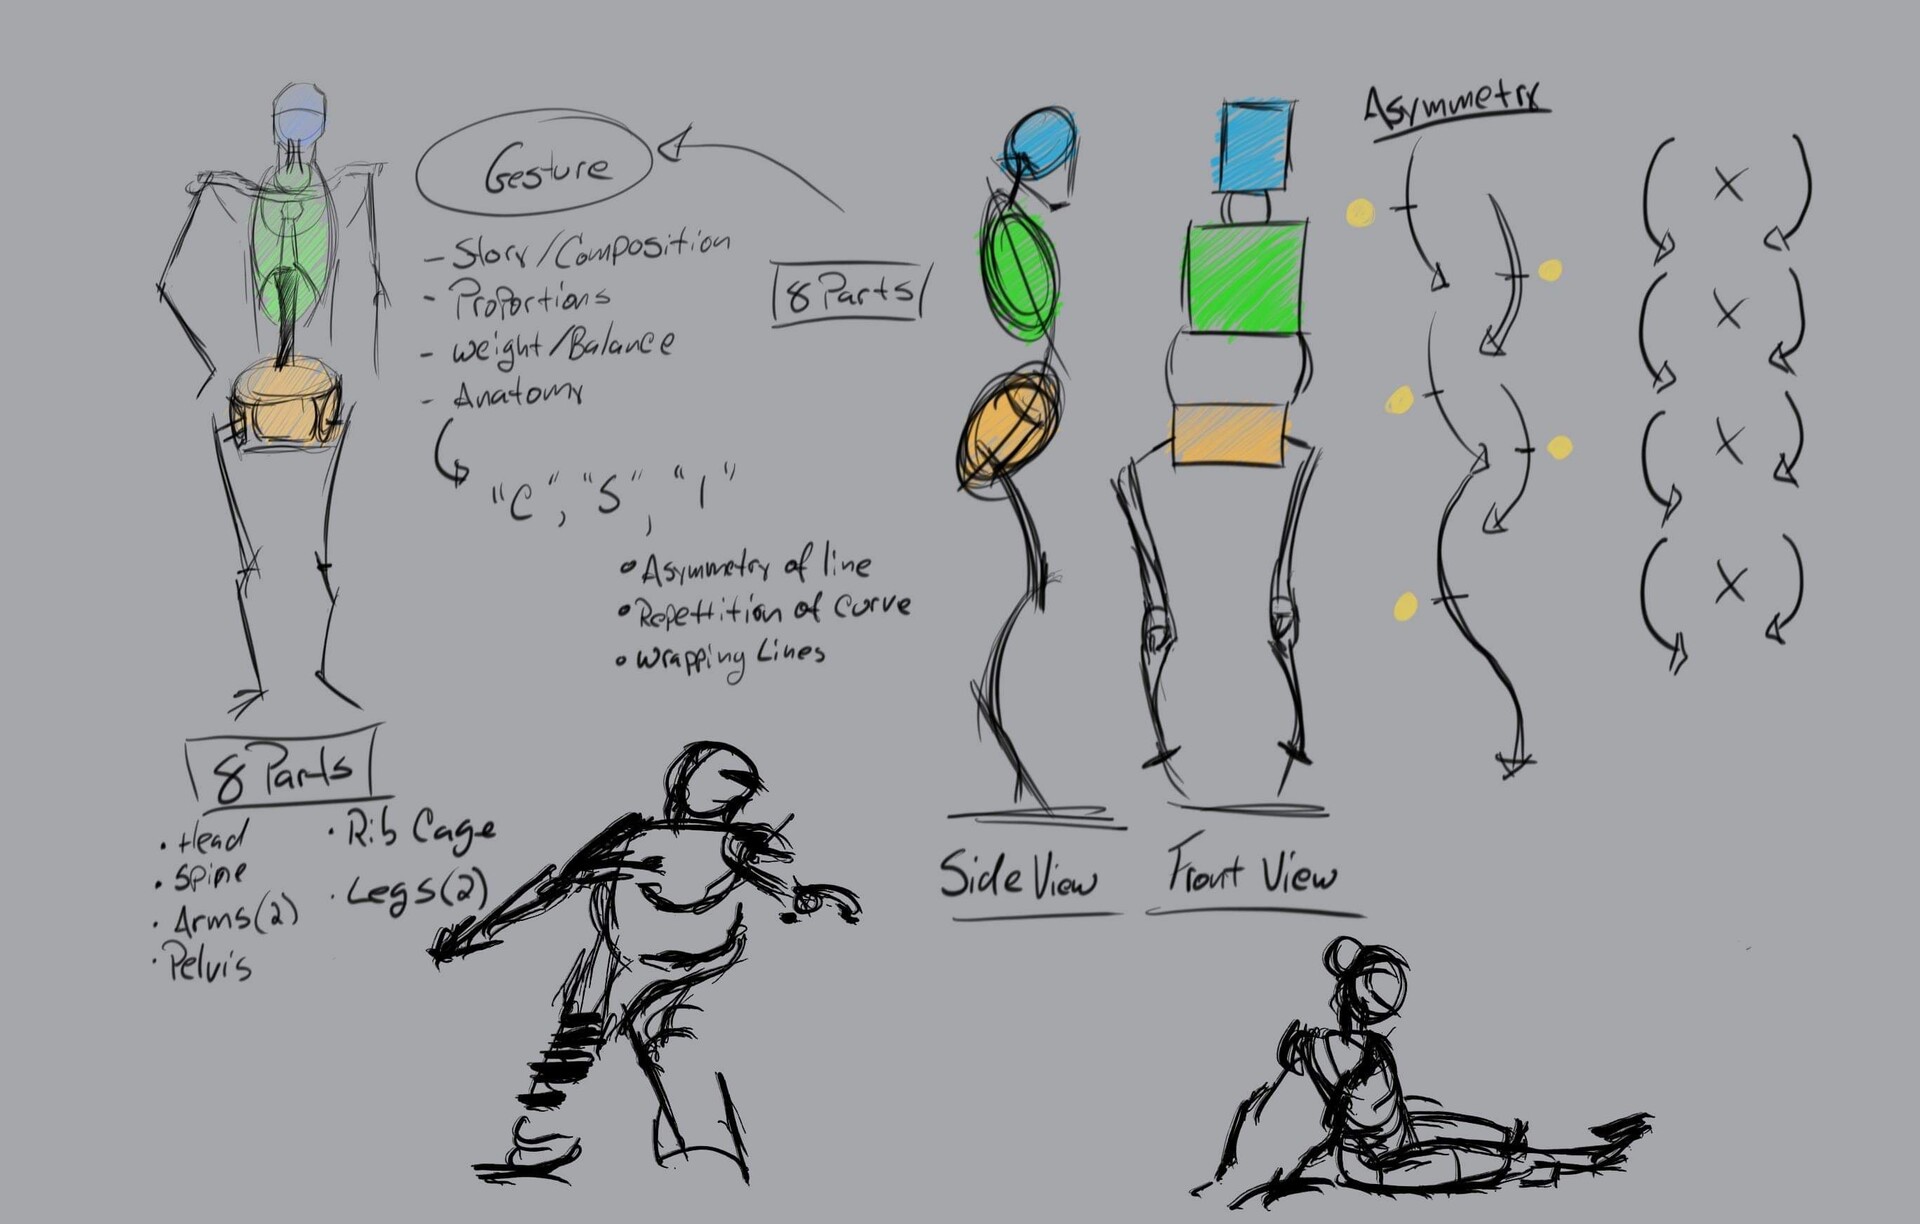 Gesture
- Story/Composition
- Proportions
- Weight/Balance
- Anatomy
"C", "S", "I"
• Asymmetry of line
• Repettition of Curve
• Wrapping Lines
8 Parts
• Head
• Spine
• Arms(2)
• Pelvis
• Rib Cage
• Legs(2)
8 Parts
Side View
Front View
Asymmetry